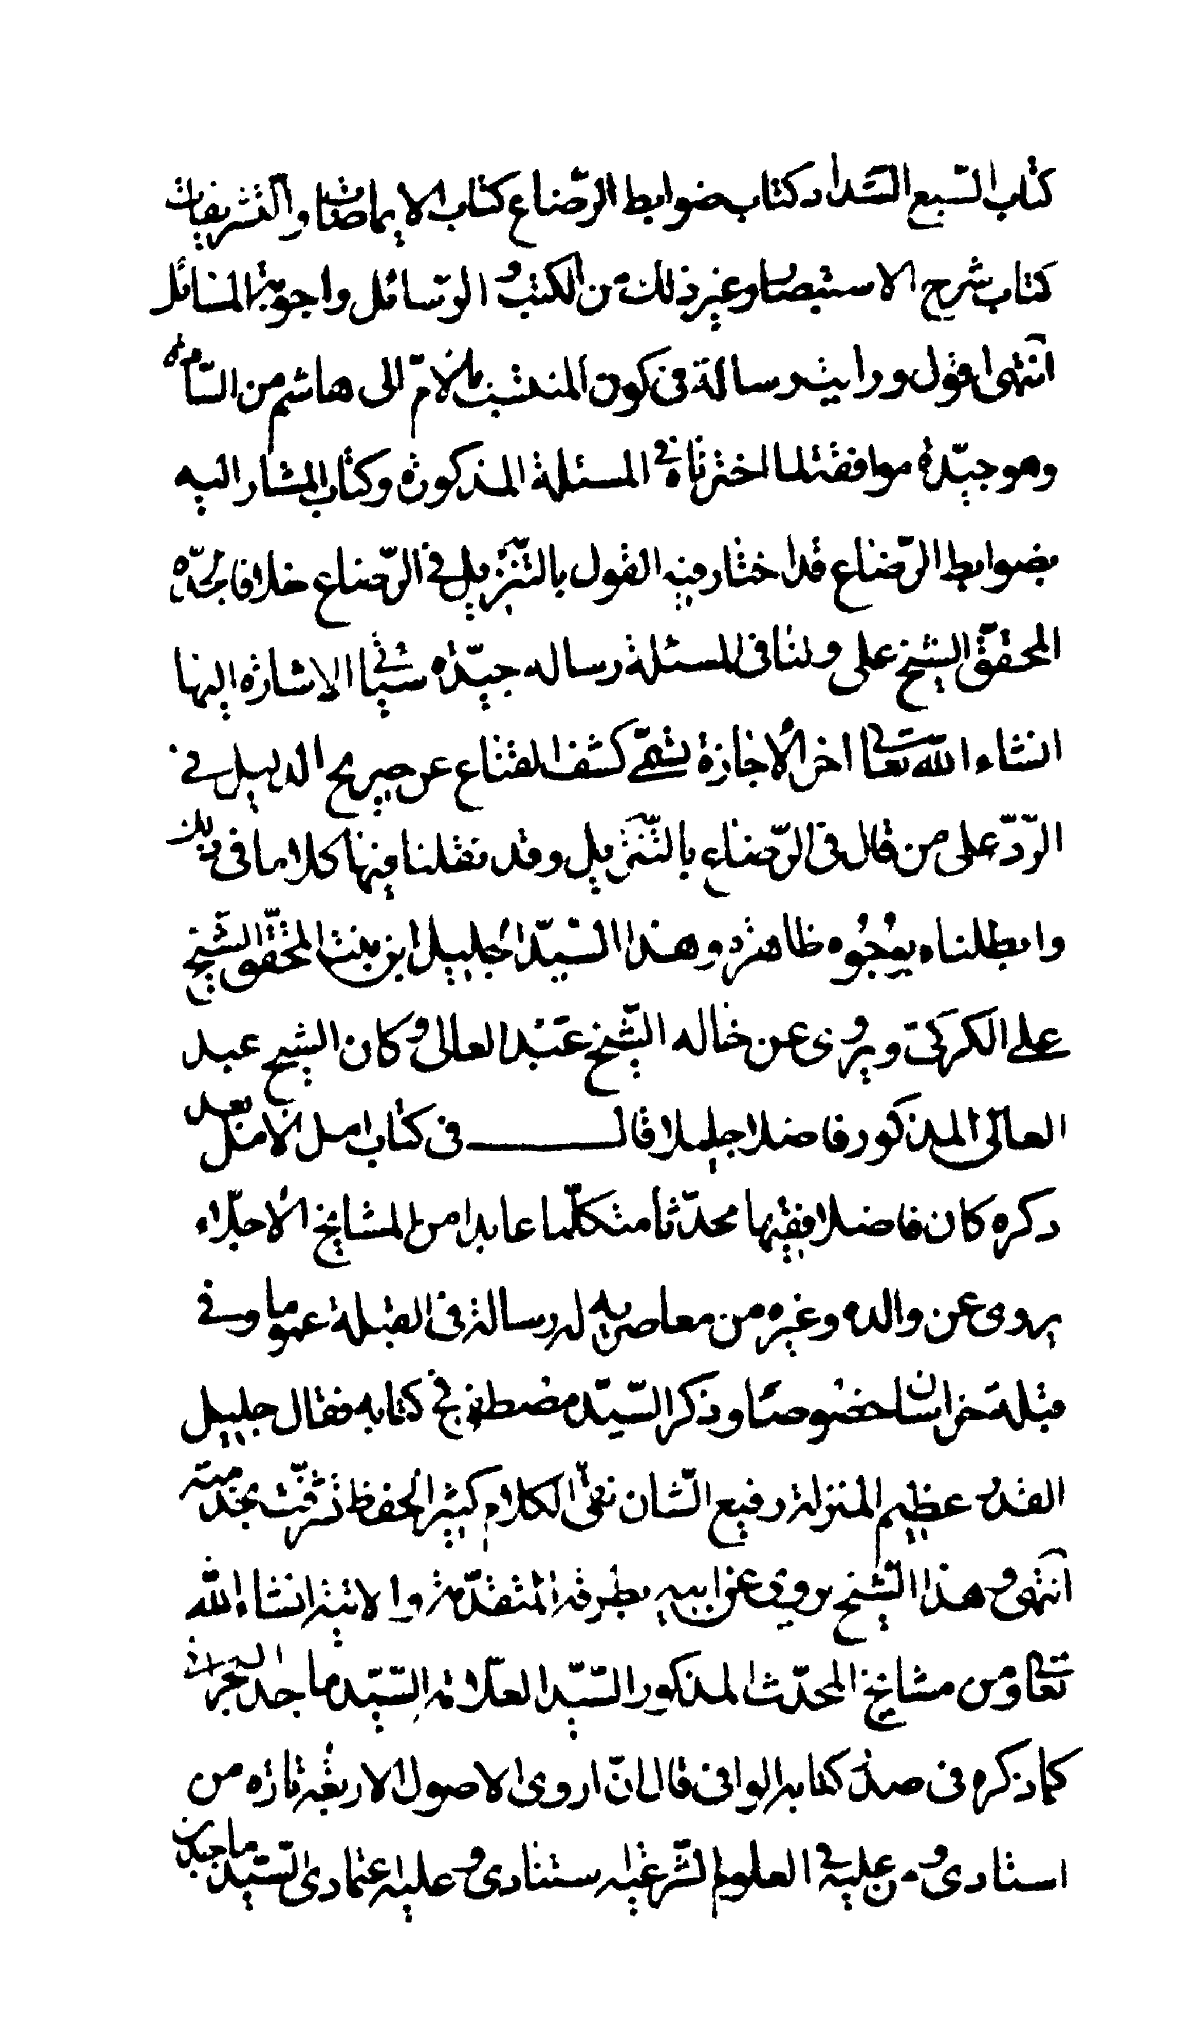 كتاب السبع الشداد كتاب ضوابط الرّضاع كتاب الايماضات والتشريفات
كتاب شرح الاستبصار وغير ذلك من الكتب و الرّسائل واجوبة المسائل
آنتهى اقول ورايت رسالة فى كون المنتسب بالامّ الى هاشم من السّادة
وهو جيّدة موافقة لما اخترناه فى المسئلة المذكورة وكتاب المشار اليه
بضوابط الرّضاع قد اختار فيه القول بالتّنزيل فى الرّضاع خلافا لجدّه
المحقّق الشيخ على ولنا فى المسئلة رساله جيّده سياتى الاشارة اليها
انشاء الله تعالى اخر الاجازة تسمّى كشف القناع عن صريح الدليل فى
الرّدّ على من قال فى الرّضاع بالتّنزيل وقد نقلنا فيها كلاما فى ذلك
وابطلناه بوجوه ظاهرة وهذا السّيّد الجليل ابن بنت المحقّق الشّيخ
على الكركىّ ويروى عن خاله الشّيخ عبد العالى و كان الشيخ عبد
العالى المذكور فاضلا جليلا قال فى كتاب امل الآمل بعد
ذكره كان فاضلا فقيها محدّثا متكلّما عابدا من المشايخ الاجلّاء
يروى عن والده وغيره من معاصريه له رسالة فى القبلة عموما وفى
قبلة خراسان خصوصا وذكر السّيّد مصطفى فى كتابه فقال جليل
القدر عظيم المنزلة رفيع الشّان نقىّ الكلام كثير الحفظ تشرّفت بخدمته
آنتهى و هذا الشّيخ يروى عن ابيه بطرقه المتقدّمة والاتية انشاء الله
تعالى ومن مشايخ المحدّث المذكور السّيّد العلّامة السّيّد ماجد البحرانى
كما ذكره فى صدر كتابه الوافى قال انّى اروى الاصول الاربعة تارة من
استادى و من عليه فى العلوم الشّرعيّه استنادى و عليه اعتمادى السّيّد ماجد بن